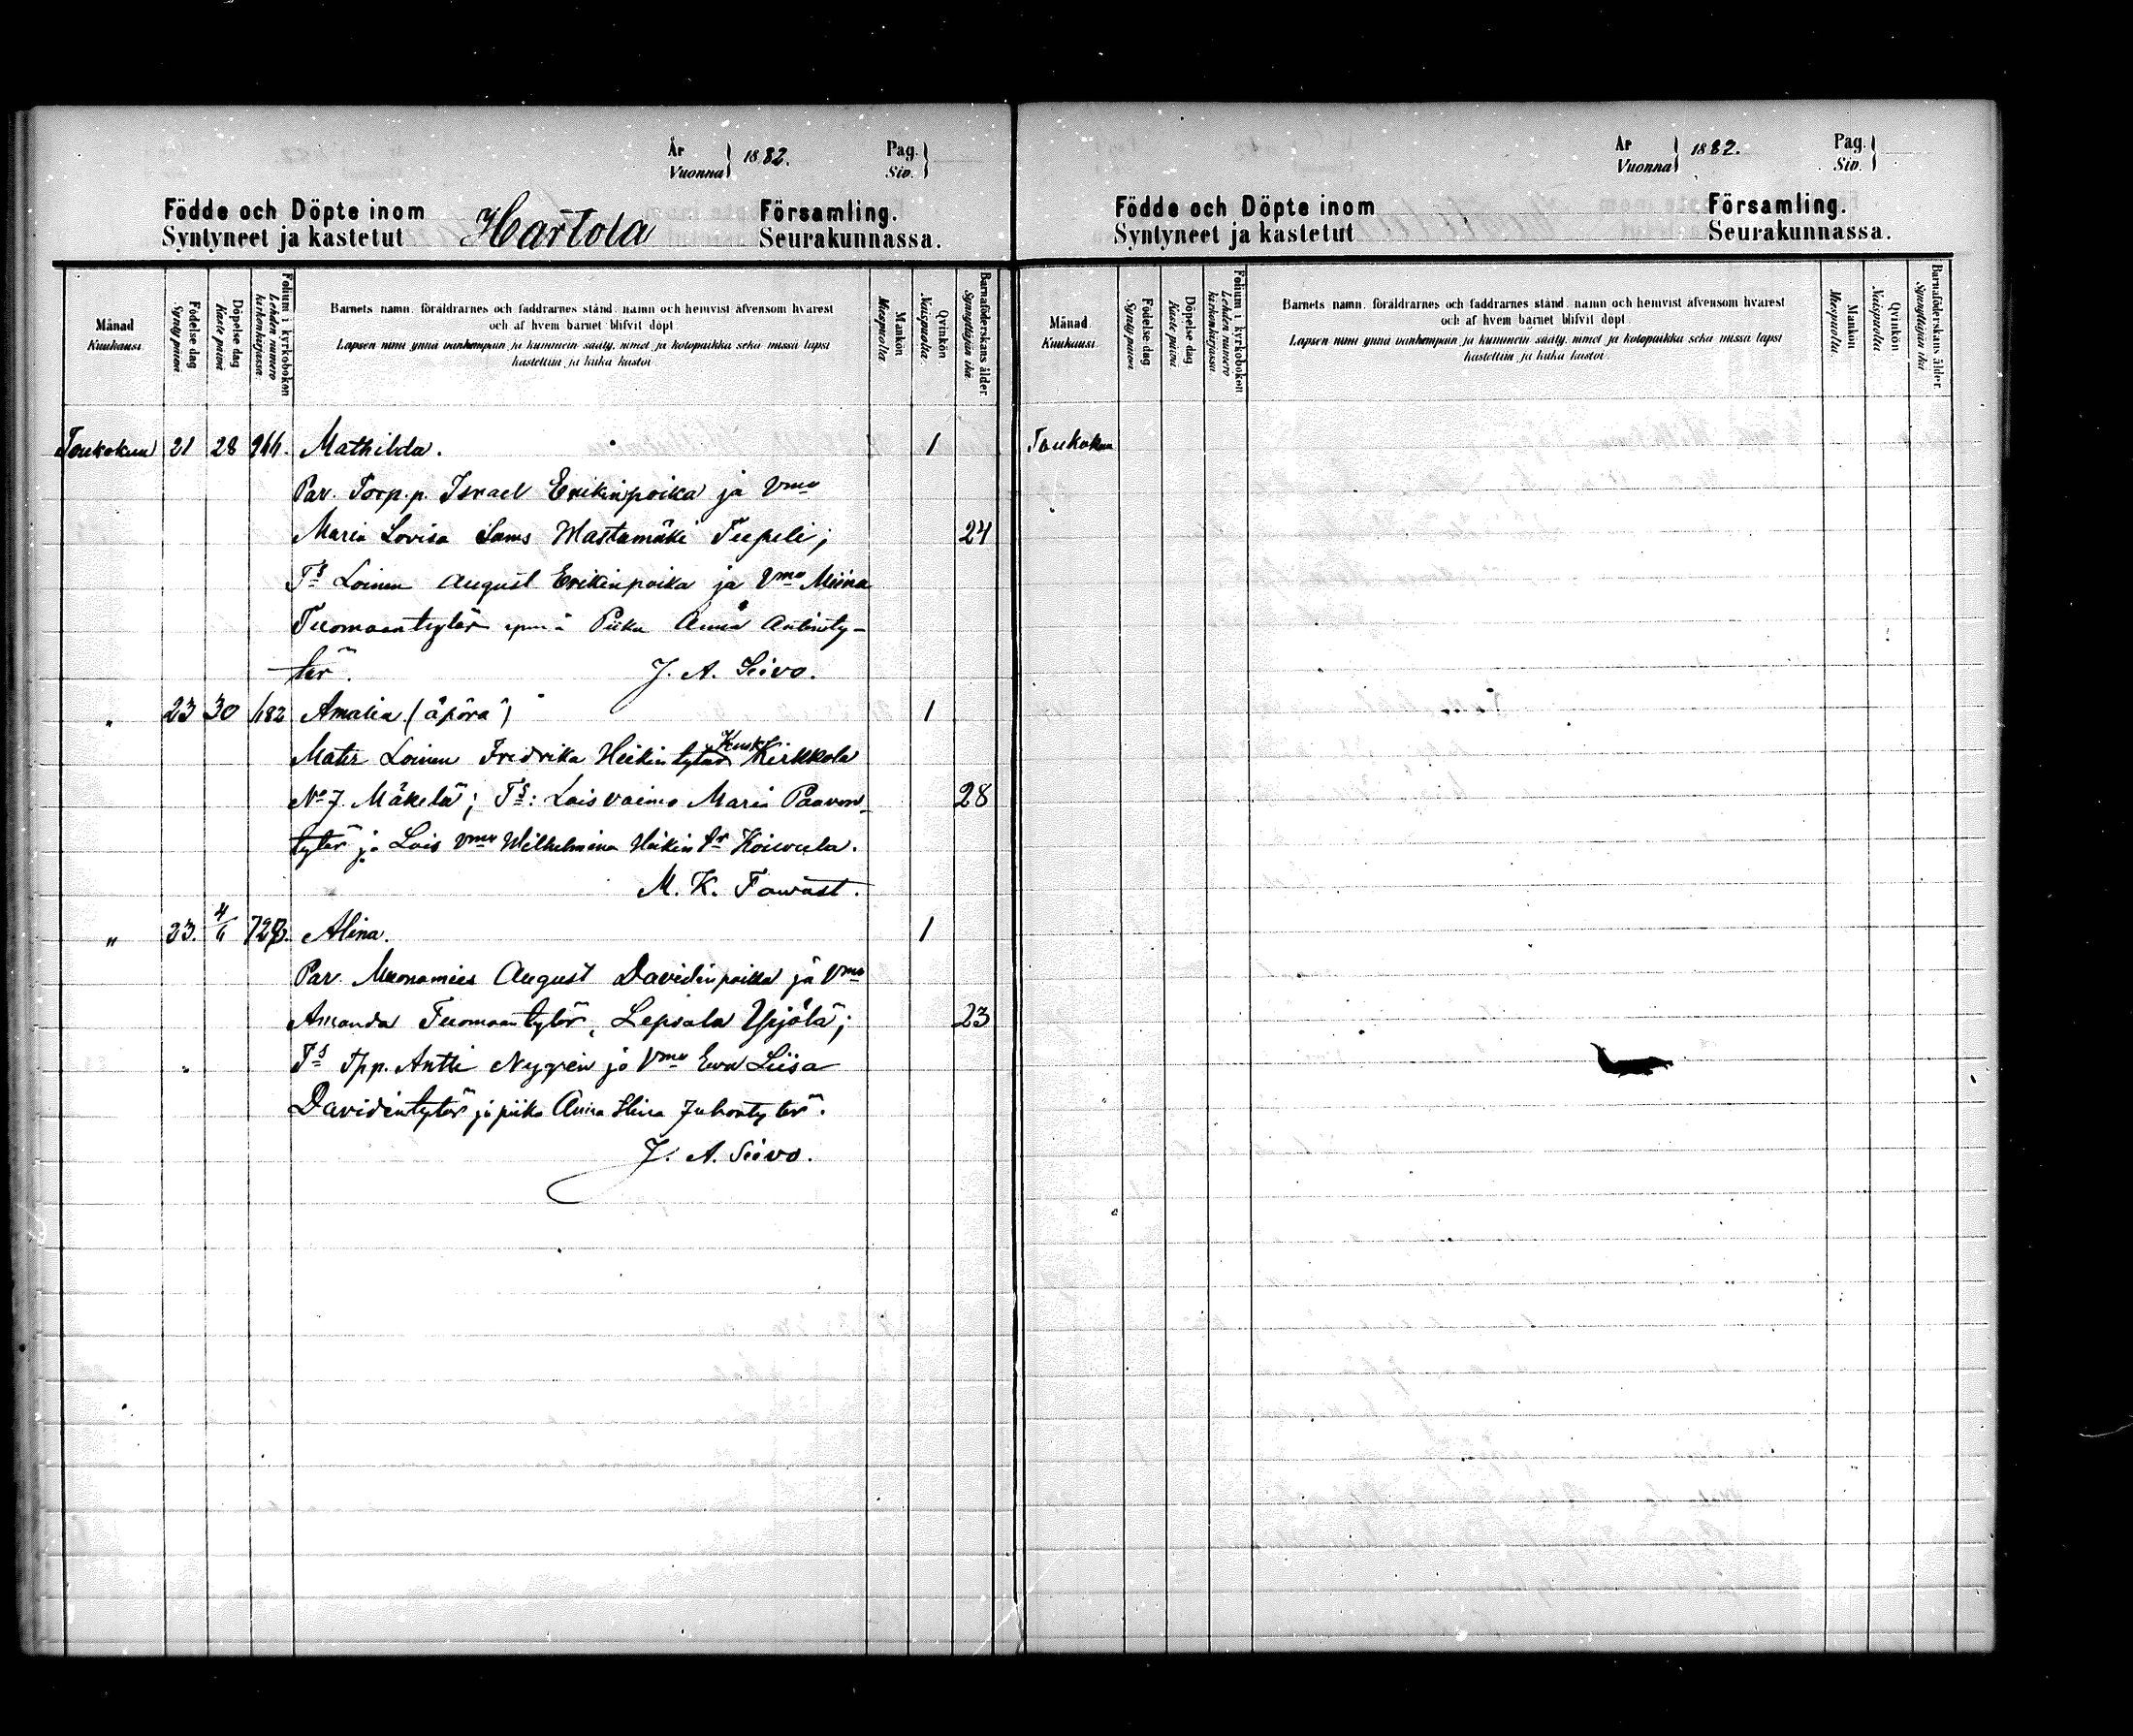 År Vuonna 1882. Pag. Siv.
Födde och Döpte inom Hartola Församling.
Syntyneet ja kastetut Seurakunnassa.
Månad Kuukausi
Födelse dag Synty päivä
Döpelse dag Kaste päivä
Folium i kyrkoboken Lehden numero kirkonkirjassa.
Barnets namn, föräldrarnes och faddrarnes stånd, namn och hemvist äfvensom hvarest
och af hvem barnet blifvit döpt
Lapsen nimi ynnä vanhempain ja kummein sääty, nimet ja kotopaikka sekä missä lapsi
kastettiin ja kuka kastoi
Mankön Miespuolta
Qvinkön Naispuolta
Barnaföderskans ålder Synnyttäjän ikä
Toukokuu 21 28 Mathilda. 1
Par. Torp. p. Israel Erikinpoika ja Vmo
Maria Lovisa Sams Mastamäki 24
Ts Loinen August Erikinpoika ja Vmo Miina
Tuomaantytär ynnä Piika Anna Antinty-
tär. J. A. Seivo.
" 23 30 182 Amalia (äpärä) 1
Mater Loinen Fredrika Heikintytär Kirkkola
No 7 Mäkelä; Ts: Lois vaimo Maria Paavon-
28
tytär ja Lois Vmo Wilhelmina Heikin tr Koivula.
M. K. Tawast.
" 23. 4/6 Alina. 1
Par. Muonamies August Davidinpoika ja Vmo
Amanda Tuomaantytär, Lepsala Yrjölä; 23
Ts Tpp. Antti Nygrén ja Vmo Ewa Liisa
Davidintytär ja piika Anna Stina Juhontytär.
J. A. Seivo.
År Vuonna 1882. Pag. Siv.
Födde och Döpte inom Församling.
Syntyneet ja kastetut Seurakunnassa.
Månad Kuukausi
Födelse dag Synty päivä
Döpelse dag Kaste päivä
Folium i kyrkoboken Lehden numero kirkonkirjassa.
Barnets namn, föräldrarnes och faddrarnes stånd, namn och hemvist äfvensom hvarest
och af hvem barnet blifvit döpt
Lapsen nimi ynnä vanhempain ja kummein sääty, nimet ja kotopaikka sekä missä lapsi
kastettiin ja kuka kastoi.
Mankön Miespuolta
Qvinkön Naispuolta
Barnaföderskans ålder. Synnyttäjän ikä
Toukokuu